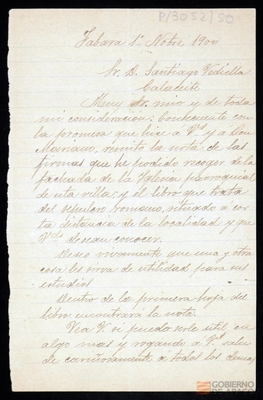 P/3052/50
Fabara 1º Nobre 1900
Sr. D. Santiago Vidiella
Calaceite
Muy Sr. mio y de toda
mi consideracion: Consecuente con
la promesa que hice a Vd y a Don
Mariano, remito la nota de las
firmas que he podido recoger de la
fachada de la Iglesia parroquial
de esta villa; y el libro que trata
del sepulcro romano, situado a cor
ta distancia de la localidad y que
Vds desean conocer.
Deseo vivamente que una y otra
cosa les sirva de utilidad para sus
estudios.
Dentro de la primera hoja del
libro encontrará la nota.
Vea V si puedo serle util en
algo mas y rogando a Vd salu
de cariñosamente a todos los demas
GOBIERNO
DE ARAGON